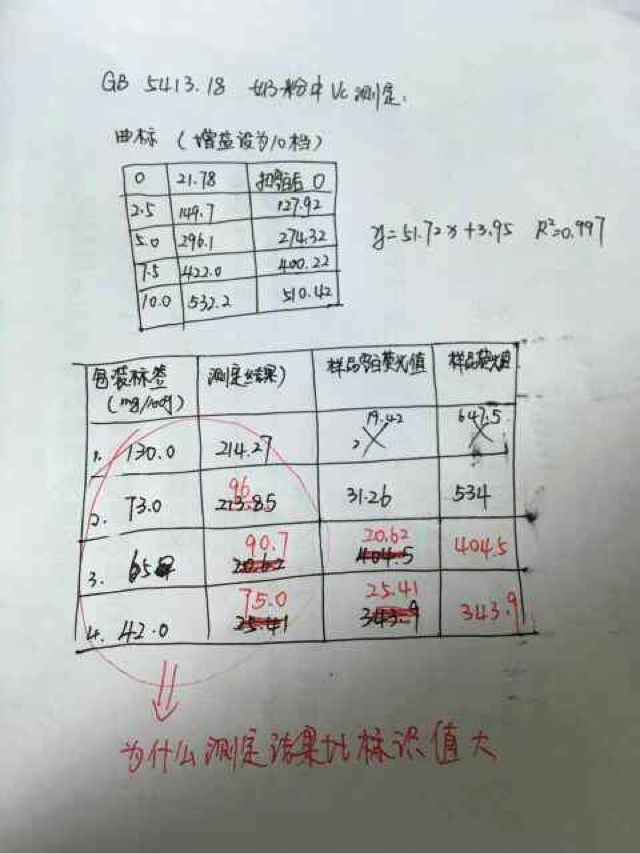 GB 5413.18 奶粉中Vc测定:
曲标 (增益设为10档)
0 21.78 扣空白后 0
2.5 149.7 127.92
5.0 296.1 274.32
7.5 422.0 400.22
10.0 532.2 510.42
y=51.72x+3.95 R²=0.997
包装标签 (mg/100g) 测定结果) 样品空白荧光值 样品荧光值
1. 130.0 214.27 19.42 647.5
2. 73.0 96 213.85 31.26 534
3. 65 90.7 20.62 20.62 404.5 404.5
4. 42.0 75.0 25.41 25.41 343.9 343.9
为什么测定结果比标识值大